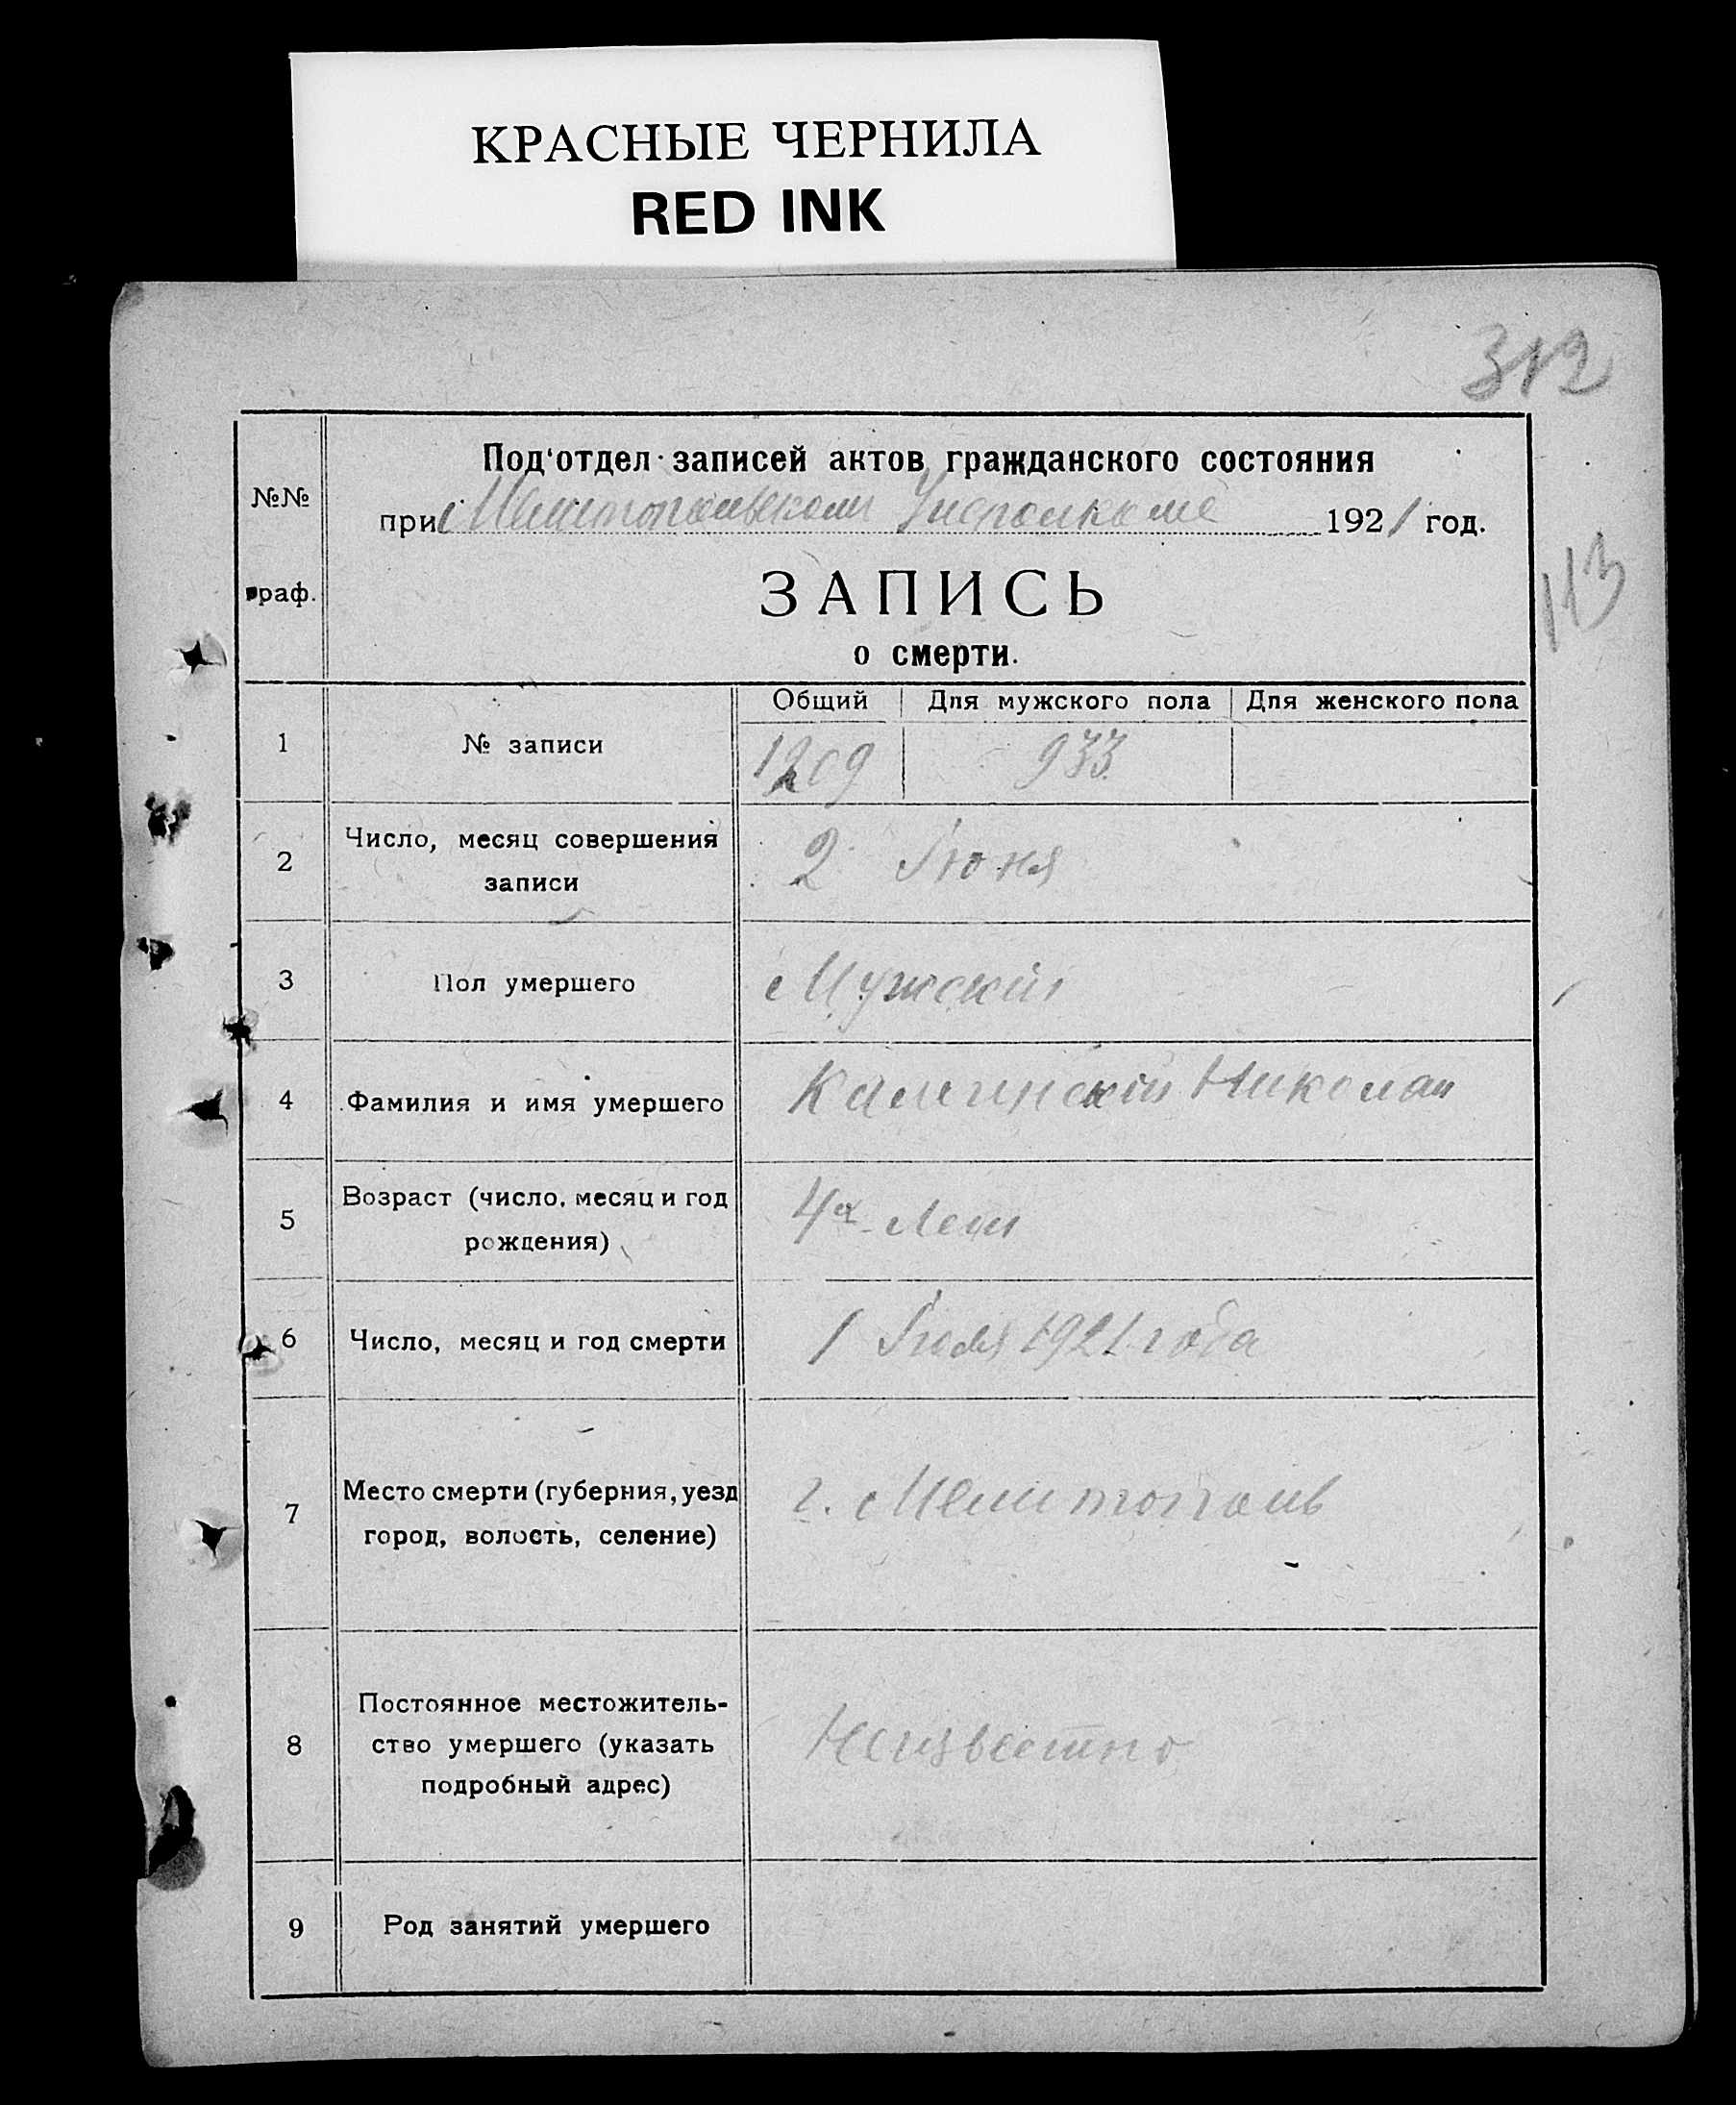 КРАСНЫЕ ЧЕРНИЛА
RED INK
312
№№
граф.
Под‘отдел записей актов гражданского состояния
при Мелитопольском Уисполкоме 1921 год.
113
ЗАПИСЬ
о смерти.
Общий Для мужского пола Для женского пола
1 № записи 1209 933
2 Число, месяц совершения
записи
2 Июня
3 Пол умершего Мужскій
4 Фамилия и имя умершего Николай
5 Возраст (число, месяц и год
рождения)
4х Лет
6 Число, месяц и год смерти 1 1921 года
7 Место смерти (губерния, уезд
город, волость, селение)
г. Мелитополь
8 Постоянное местожитель-
ство умершего (указать
подробный адрес)
Неизвестно
9 Род занятий умершего